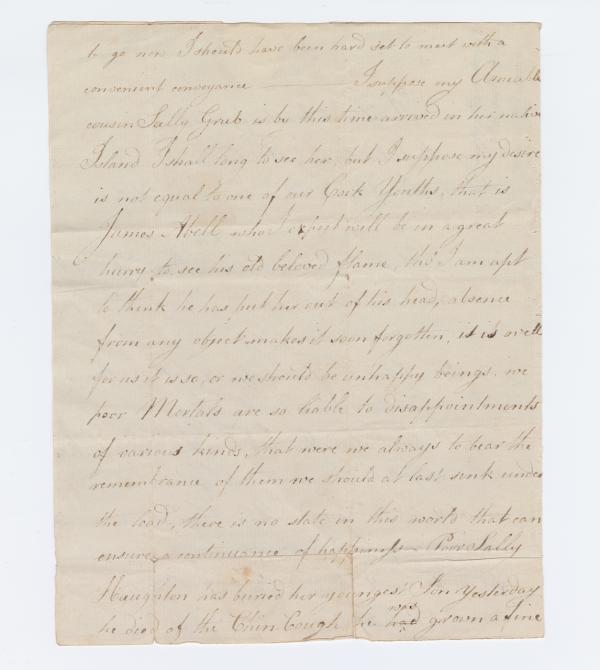 to go now I should have been hard set to meet with a
convenient conveyance —— I suppose my Amiable
cousin Sally Grub is by this time arrived in her native
Island I shall long to see her, but I suppose my desire
is not equal to one of our Cork Youths, that is
James Abell who I expect will be in a great
hurry to see his old beloved flame, tho' I am apt
to think he has put her out of his head, absence
from any object makes it soon forgotten, it is well
for us it is so, or we should be unhappy beings. we
poor Mortals are so liable to disappointments
of various kinds, that were we always to bear the
remembrance of them we should at last sink under
the load, there is no state in this world that can
ensure a continuance of happiness — Poor Sally
Haughton has buried her youngest Son yesterday
he died of the Chin Cough he had was grown a fine